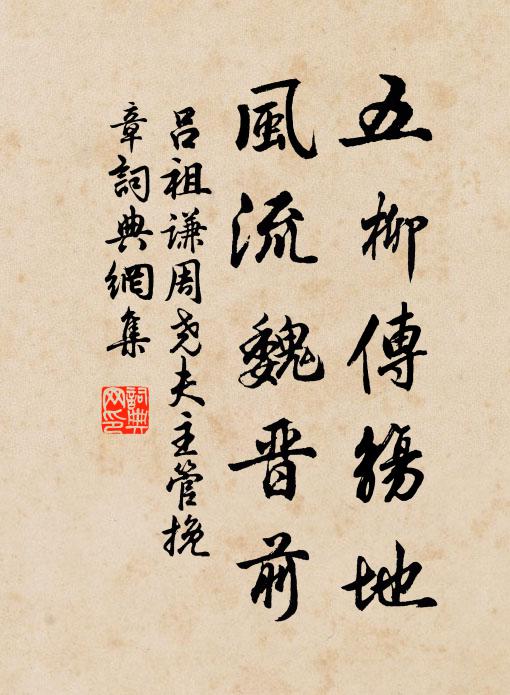 五柳傳觴地
風流魏晉前
呂祖謙周堯夫主管挽
章詞典網集
詞典網印